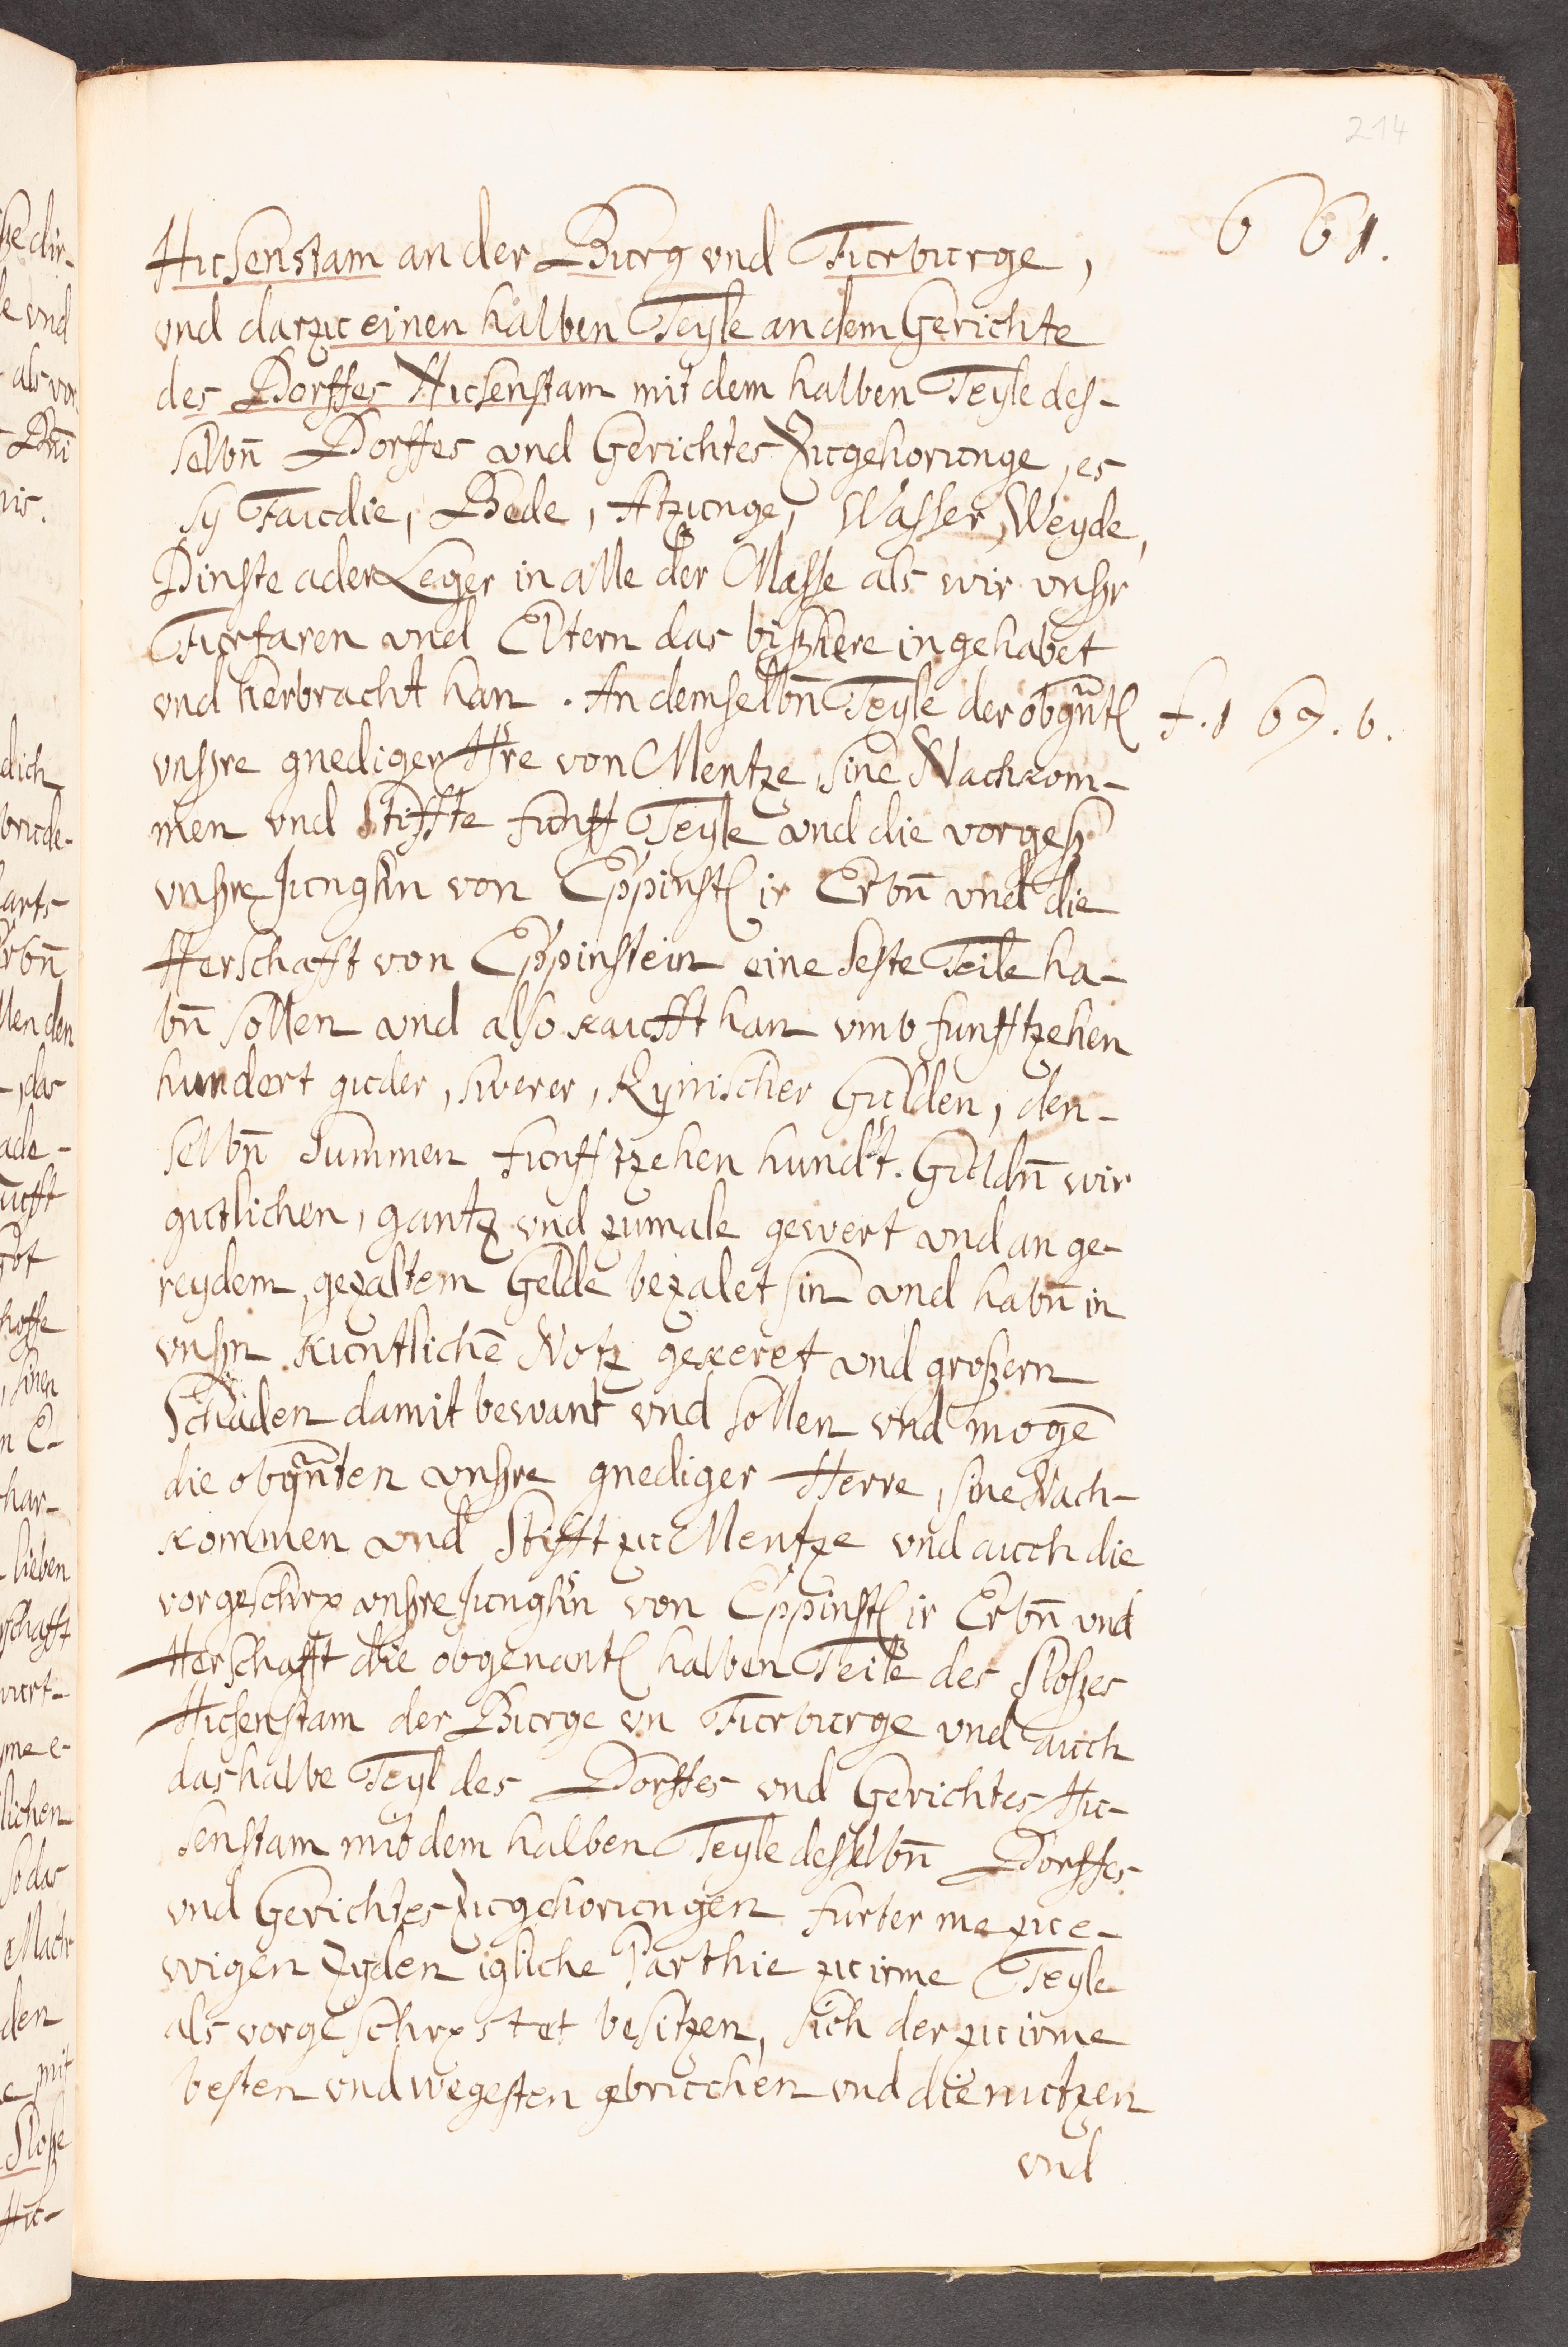 214
661.
Husenstam an der Burg vnd Furburge,
vnd darzu einen halben Teyle an dem Gerichte
des Dorffes Husenstam mit dem halben Teyle des-
selbn̄ Dorffes vnd Gerichtes Zugehorunge, es
sy Faudie, Bede, Atzunge, Wasser, Weyde,
Dinste ader Leger in alle der Masse als wir vnßr
Furfaren vnd Eltern das bißhere ingehabet
vnd herbracht han. An demselbn̄ Teyle der obgn̄t
f. 167. b.
vnßre gnediger Hre von Mentze, sine Nachkom-
men vnd Stiffte funff Teyle vnd die vorgeß
vnßre Junghn von Eppinst ir Erbn̄ vnd die
Herschafft von Eppinstein eine seste Teile ha-
bn̄ sollen vnd also kaufft han vmb funfftzehen
hundert guder, swerer, Rynischer Gulden, den-
selbn̄ Summen funfftzehen hundt. Guldn̄ wir
gutlichen, gantz vnd zumale gewert vnd an ge-
reydem, gezaltem Gelde bezalet sin vnd habn̄ in
vnßn kuntlichē Notz gekeret vnd großern
Schaden damit bewant vnd sollen vnd mogē
die obgn̄ten vnßre gnediger Herre, sine Nach-
kommen vnd Stifft zu Mentze vnd auch die
vorgeschrx vnßre Junghn von Eppinst ir Erbn̄ vnd
Herschafft die obgenant halben Teile des Sloßes
Husenstam der Burge vn Furburge vnd auch
das halbe Teyl des Dorffes vnd Gerichtes Hu-
senstam mit dem halben Teyle desselbn̄ Dorffes
vnd Gerichtes Zugehorungen furter me zu e-
wigen Zyden igliche Parthie zu irme Teyle
als vorgeschrx stet besitzen, sich der zu irme
besten vnd wegesten gebruchen vnd die nutzen
vnd